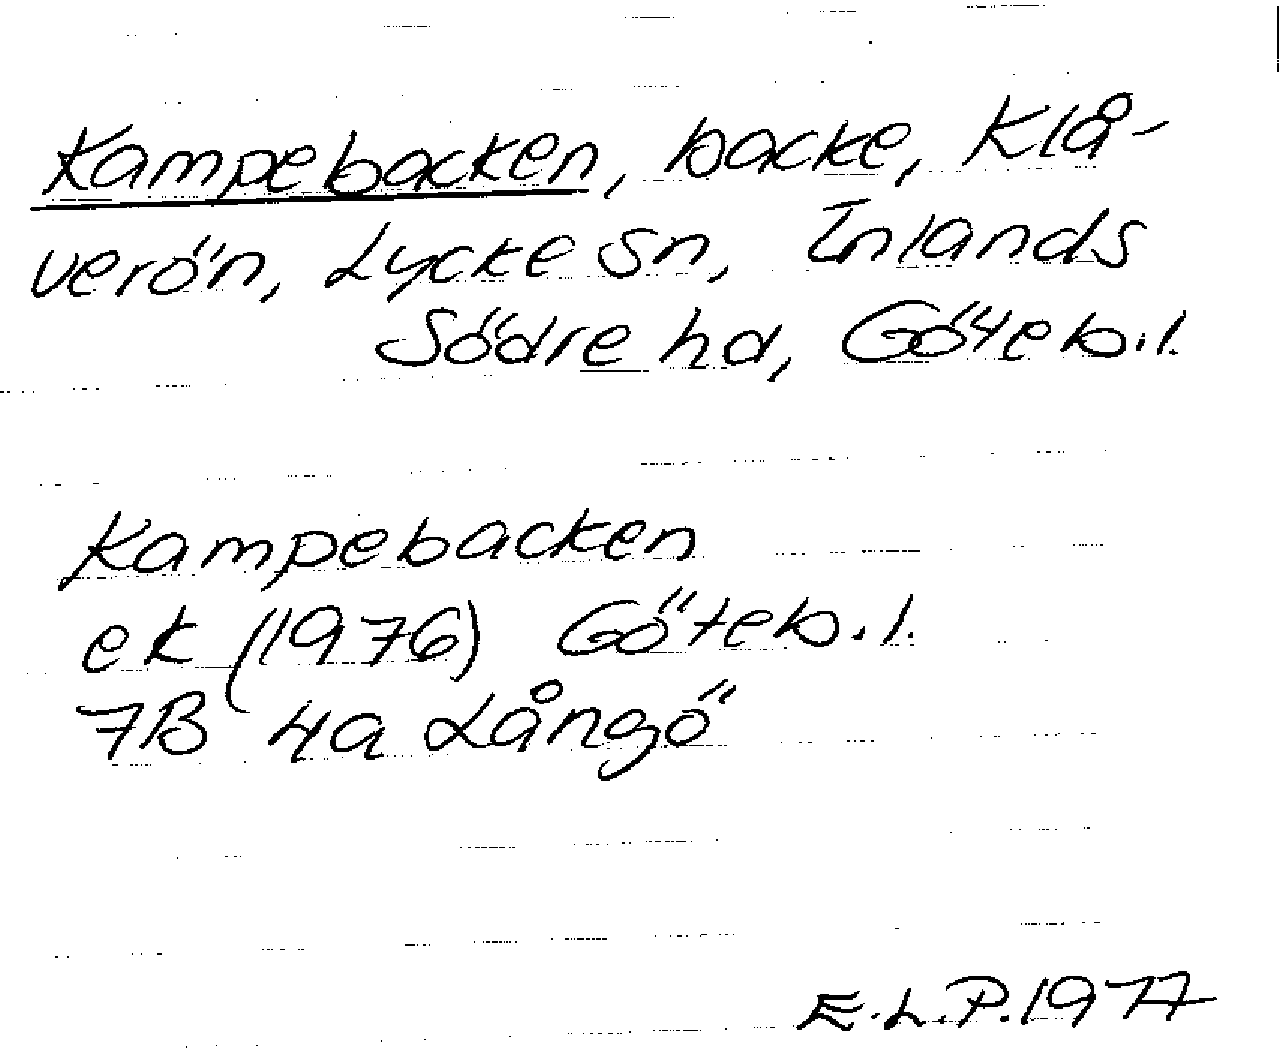 Kampebacken, backe, Klå-
verön, Lycke sn, Inlands
Södre hd, Göteb.l.
Kampebacken
ek (1976) Göteb.l.
7B 4a Långö
E.L.P.1977